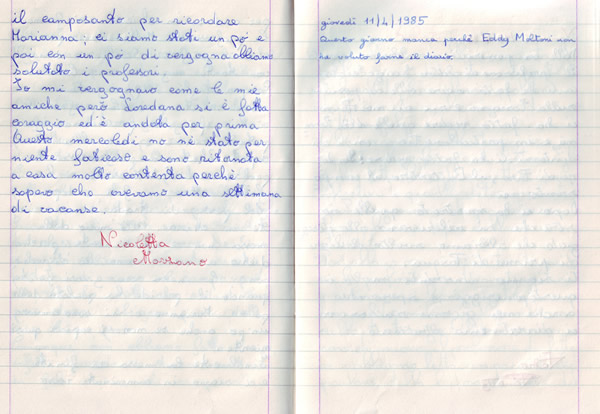 il camposanto per ricordare
Marianna; ci siamo stati un pò e
poi con un pò di vergogna abbiamo
salutato i professori.
Io mi vergognavo come le mie
amiche però Loredana si è fatta
coraggio ed'è andata per prima
Questo mercoledì no nè stato per
niente faticoso e sono ritornata
a casa molto contenta perchè
sapevo che avevamo una settimana
di vacanse.
Nicoletta
Marsano
giovedì 11/4/1985
Questo giorno manca perchè Eddy Moltoni non
ha voluto farne il diario.